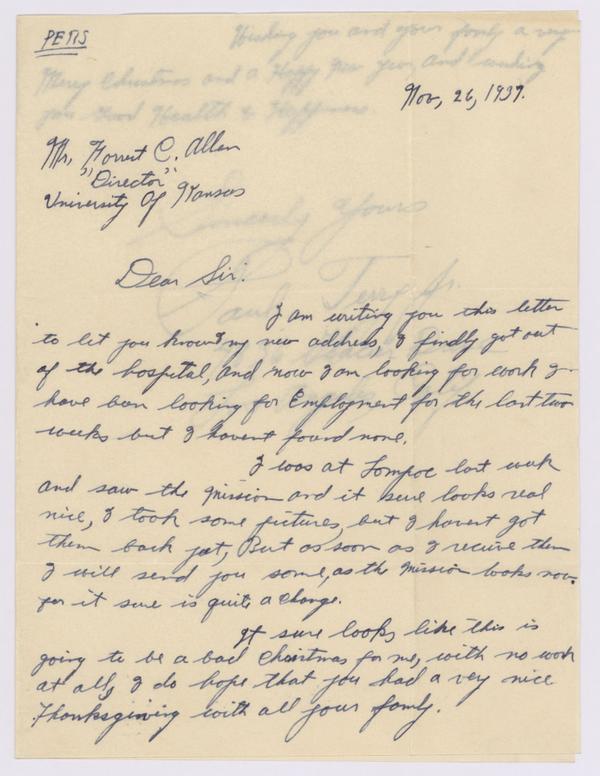 PETIS
Nov, 26, 1937.
Mr, Forrest C. Allen
"Director"
University Of Kansas
Dear Sir:
I am writing you this letter
to let you know my new address, I finally got out
of the hospital, and now I am looking for work I
have been looking for Employment for the last two
weeks but I havent found none.
I was at Lompoc last week
and saw the Mission and it sure looks real
nice, I took some pictures, but I havent got
them back yet, But as soon as I receive them
I will send you some, as the Mission looks now.
for it sure is quite a change.
It sure looks like this is
going to be a bad Christmas for me, with no work
at all, I do hope that you had a very nice
Thanksgiving with all your family.
Wishing you and your family a very
Merry Christmas and a Happy New Year, and sending
you Good Health & Happiness.
Sincerely Yours
Terry Jr.